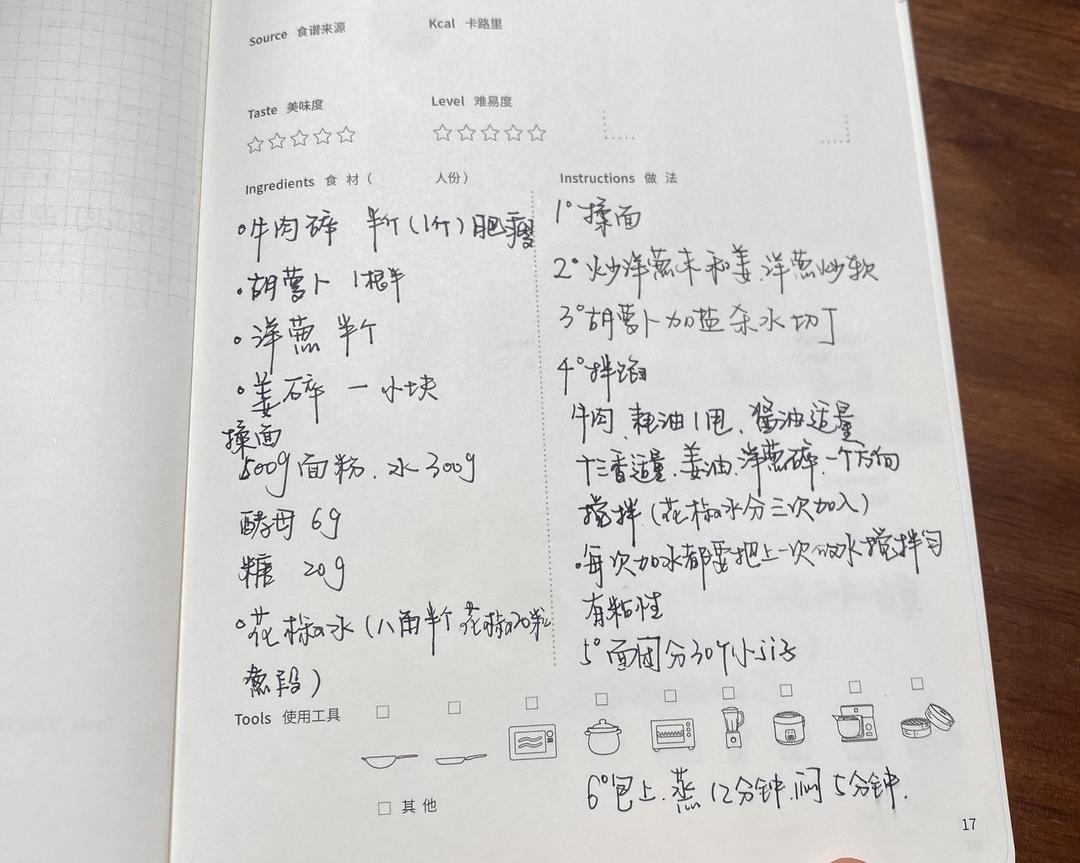 Source 食谱来源
Kcal 卡路里
Taste 美味度
Level 难易度
Ingredients 食 材（ 人份）
牛肉碎 半斤(1斤)肥瘦
胡萝卜 1根半
洋葱 半个
姜碎 一小块
揉面
500g面粉、水300g
酵母 6g
糖 20g
花椒水(八角半个 花椒20粒
葱段)
Instructions 做 法
1° 揉面
2° 炒洋葱末和姜、洋葱炒软
3° 胡萝卜加盐杀水切丁
4° 拌馅
牛肉、耗油1甩、酱油适量
十三香适量、姜油、洋葱碎、一个方向
搅拌(花椒水分三次加入)
每次加水都要把上一次的水搅拌匀
有粘性
5° 面团分30个小ji子
Tools 使用工具
其他
6° 包上、蒸12分钟、闷5分钟.
17